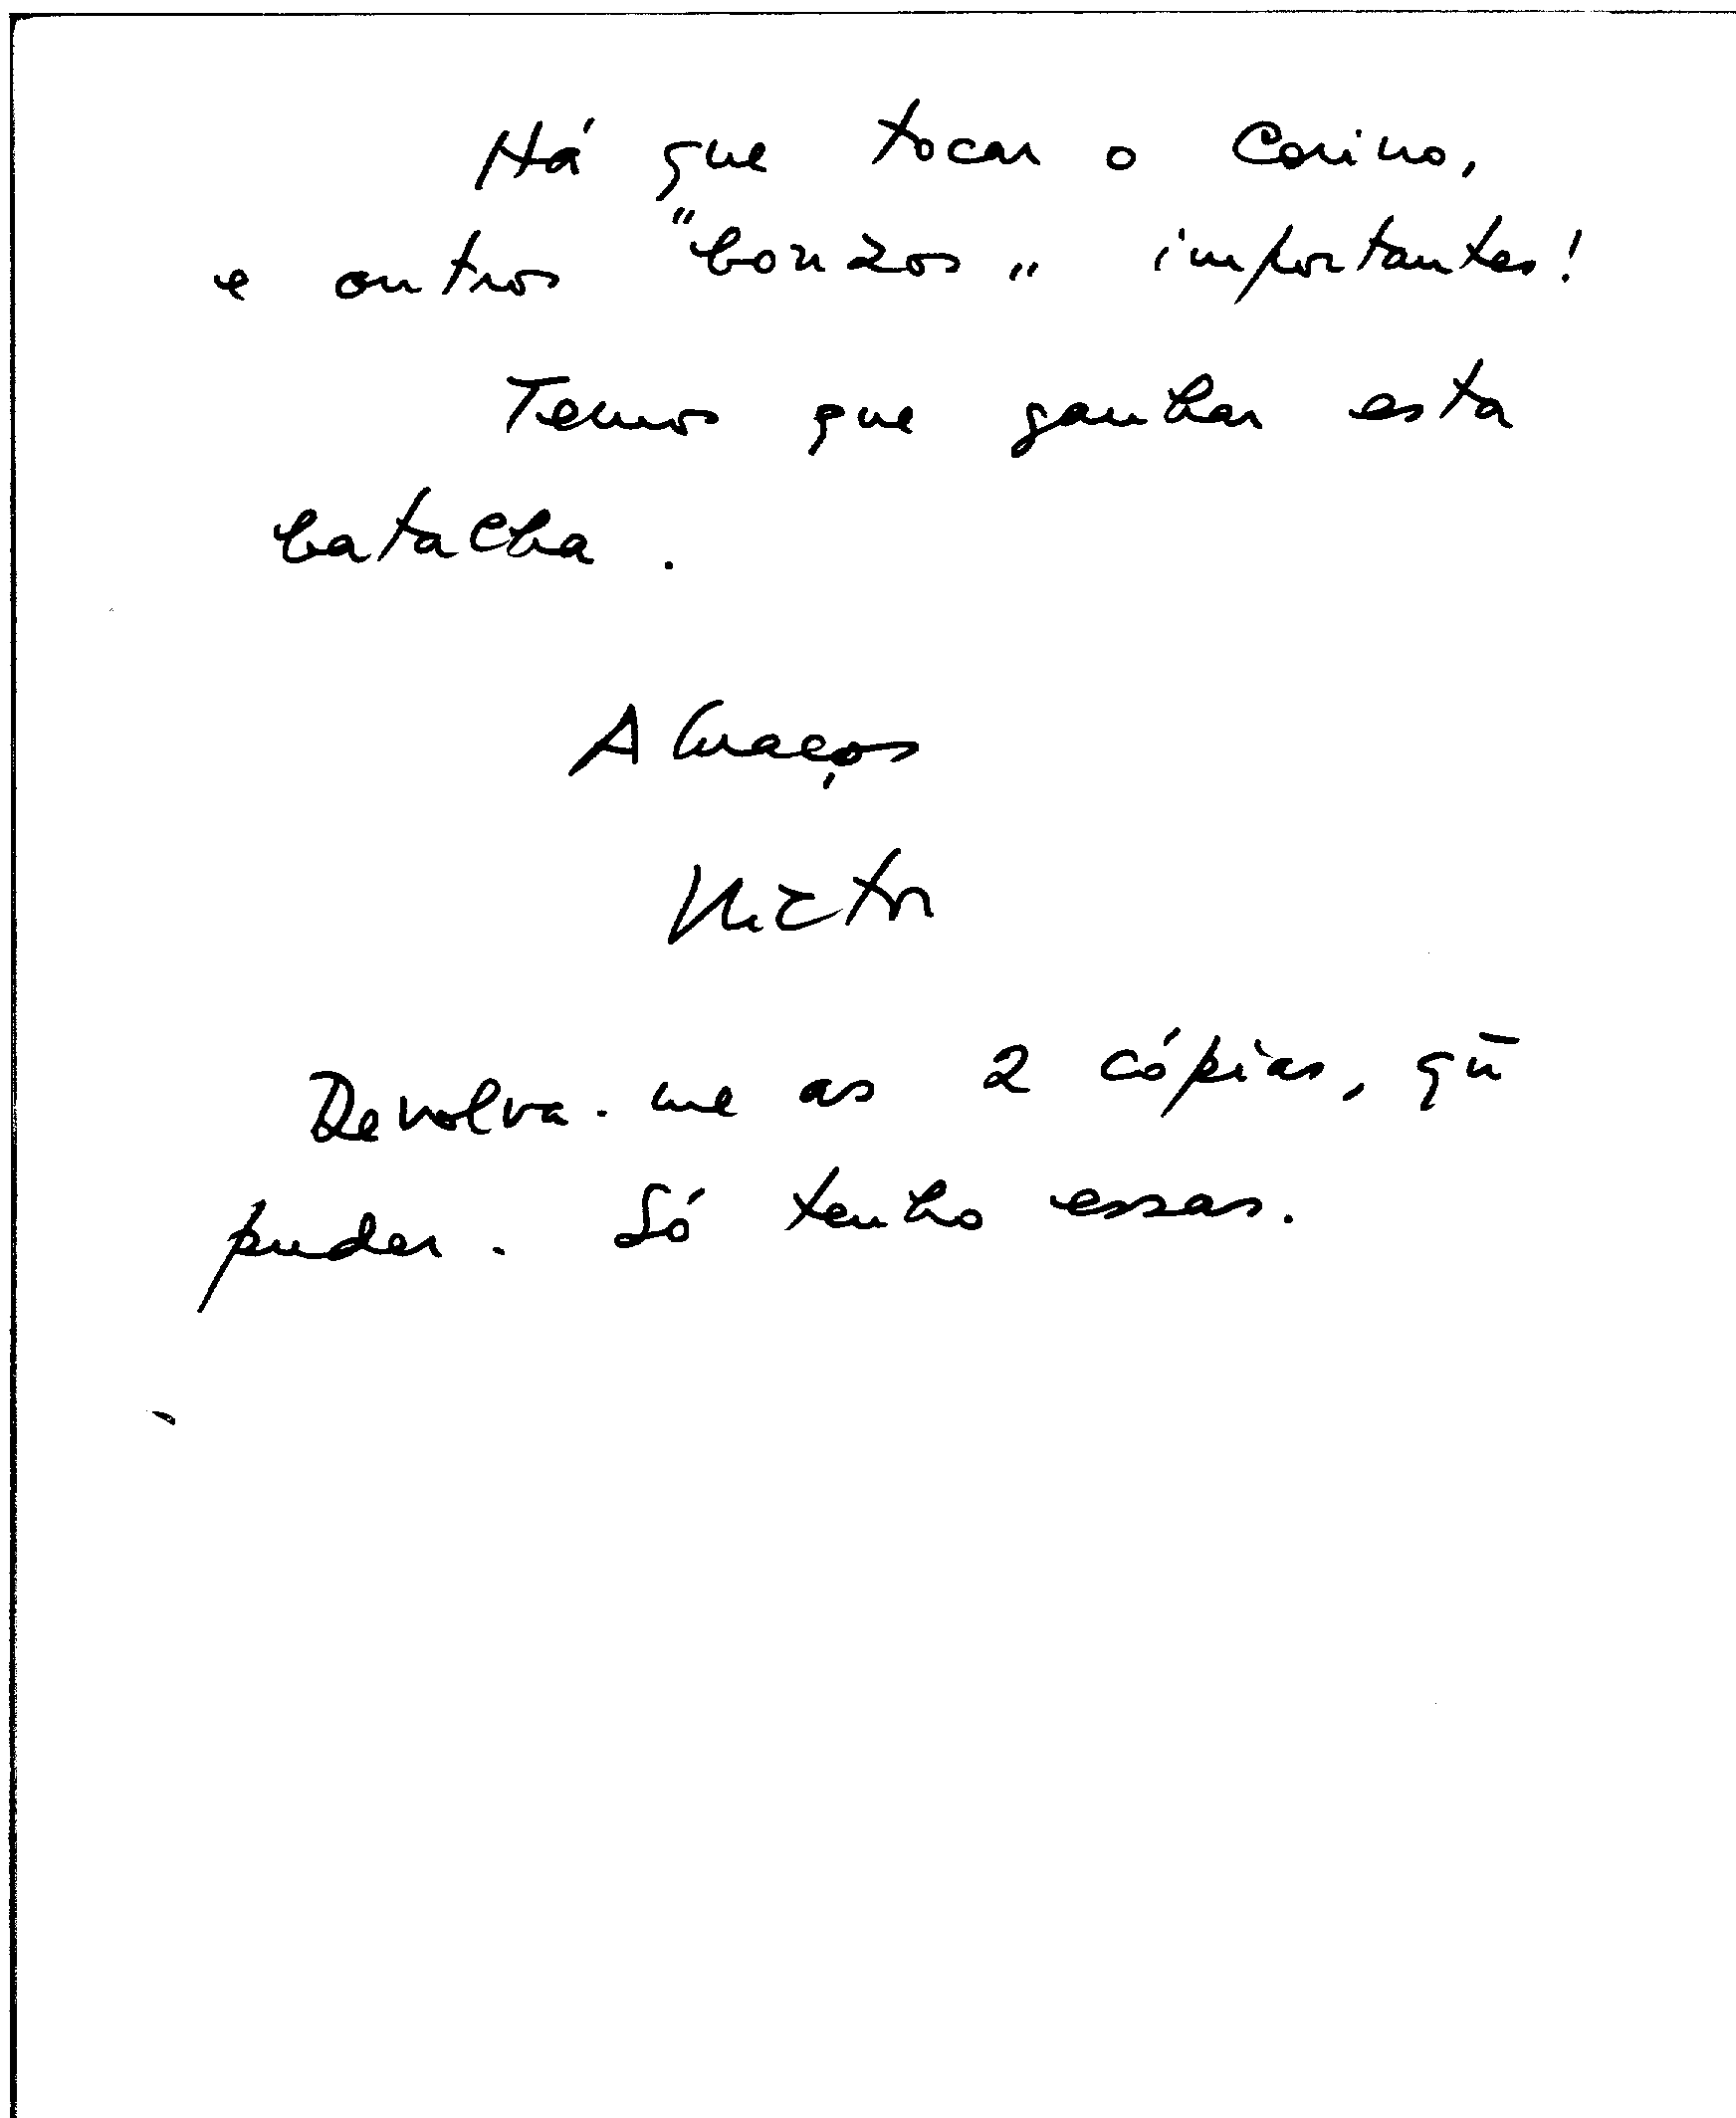 Há que tocar o Corino,
e outros "bonzos" importantes!
Temos que ganhar esta
batalha.
Abraços
Victor
Devolva-me as 2 cópias, qū
puder. Só tenho essas.